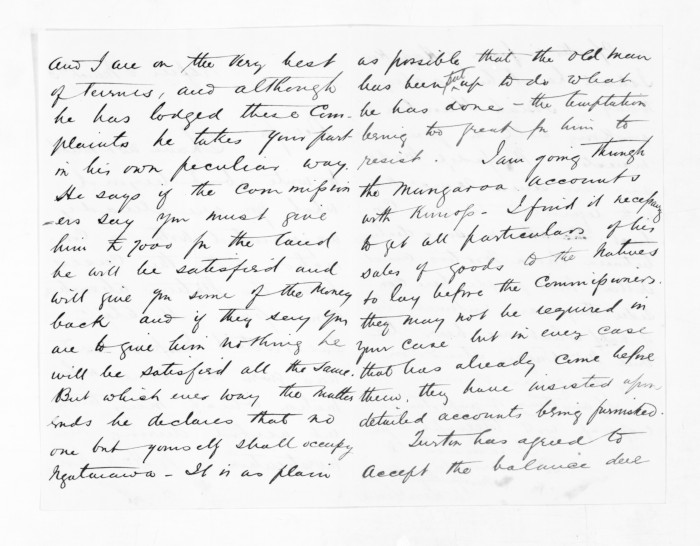 and I are on the very best
of terms, and although
he has lodged these Com-
plaints he takes your part
in his own peculiar way.
He says if the Commission
-ers say you must give
him £7000 for the land
he will be satisfied and
will give you some of the money
back and if they say you
are to give him nothing he
will be satisfied all the same.
But which ever way the matter
ends he declares that no
one but yourself shall occupy
Ngatarawa - It is as plain
as possible that the old man
has been put up to do what
he has done - the temptation
being too great for him to
resist. I am going through
the Mangaroa accounts
with Kinross - I find it necessary
to get all particulars of his
sales of goods to the Natives
to lay before the Commissioners.
they may not be required in
your case but in every case
that has already come before
them, they have insisted upon
detailed accounts being furnished.
Turton has agreed to
accept the balance due